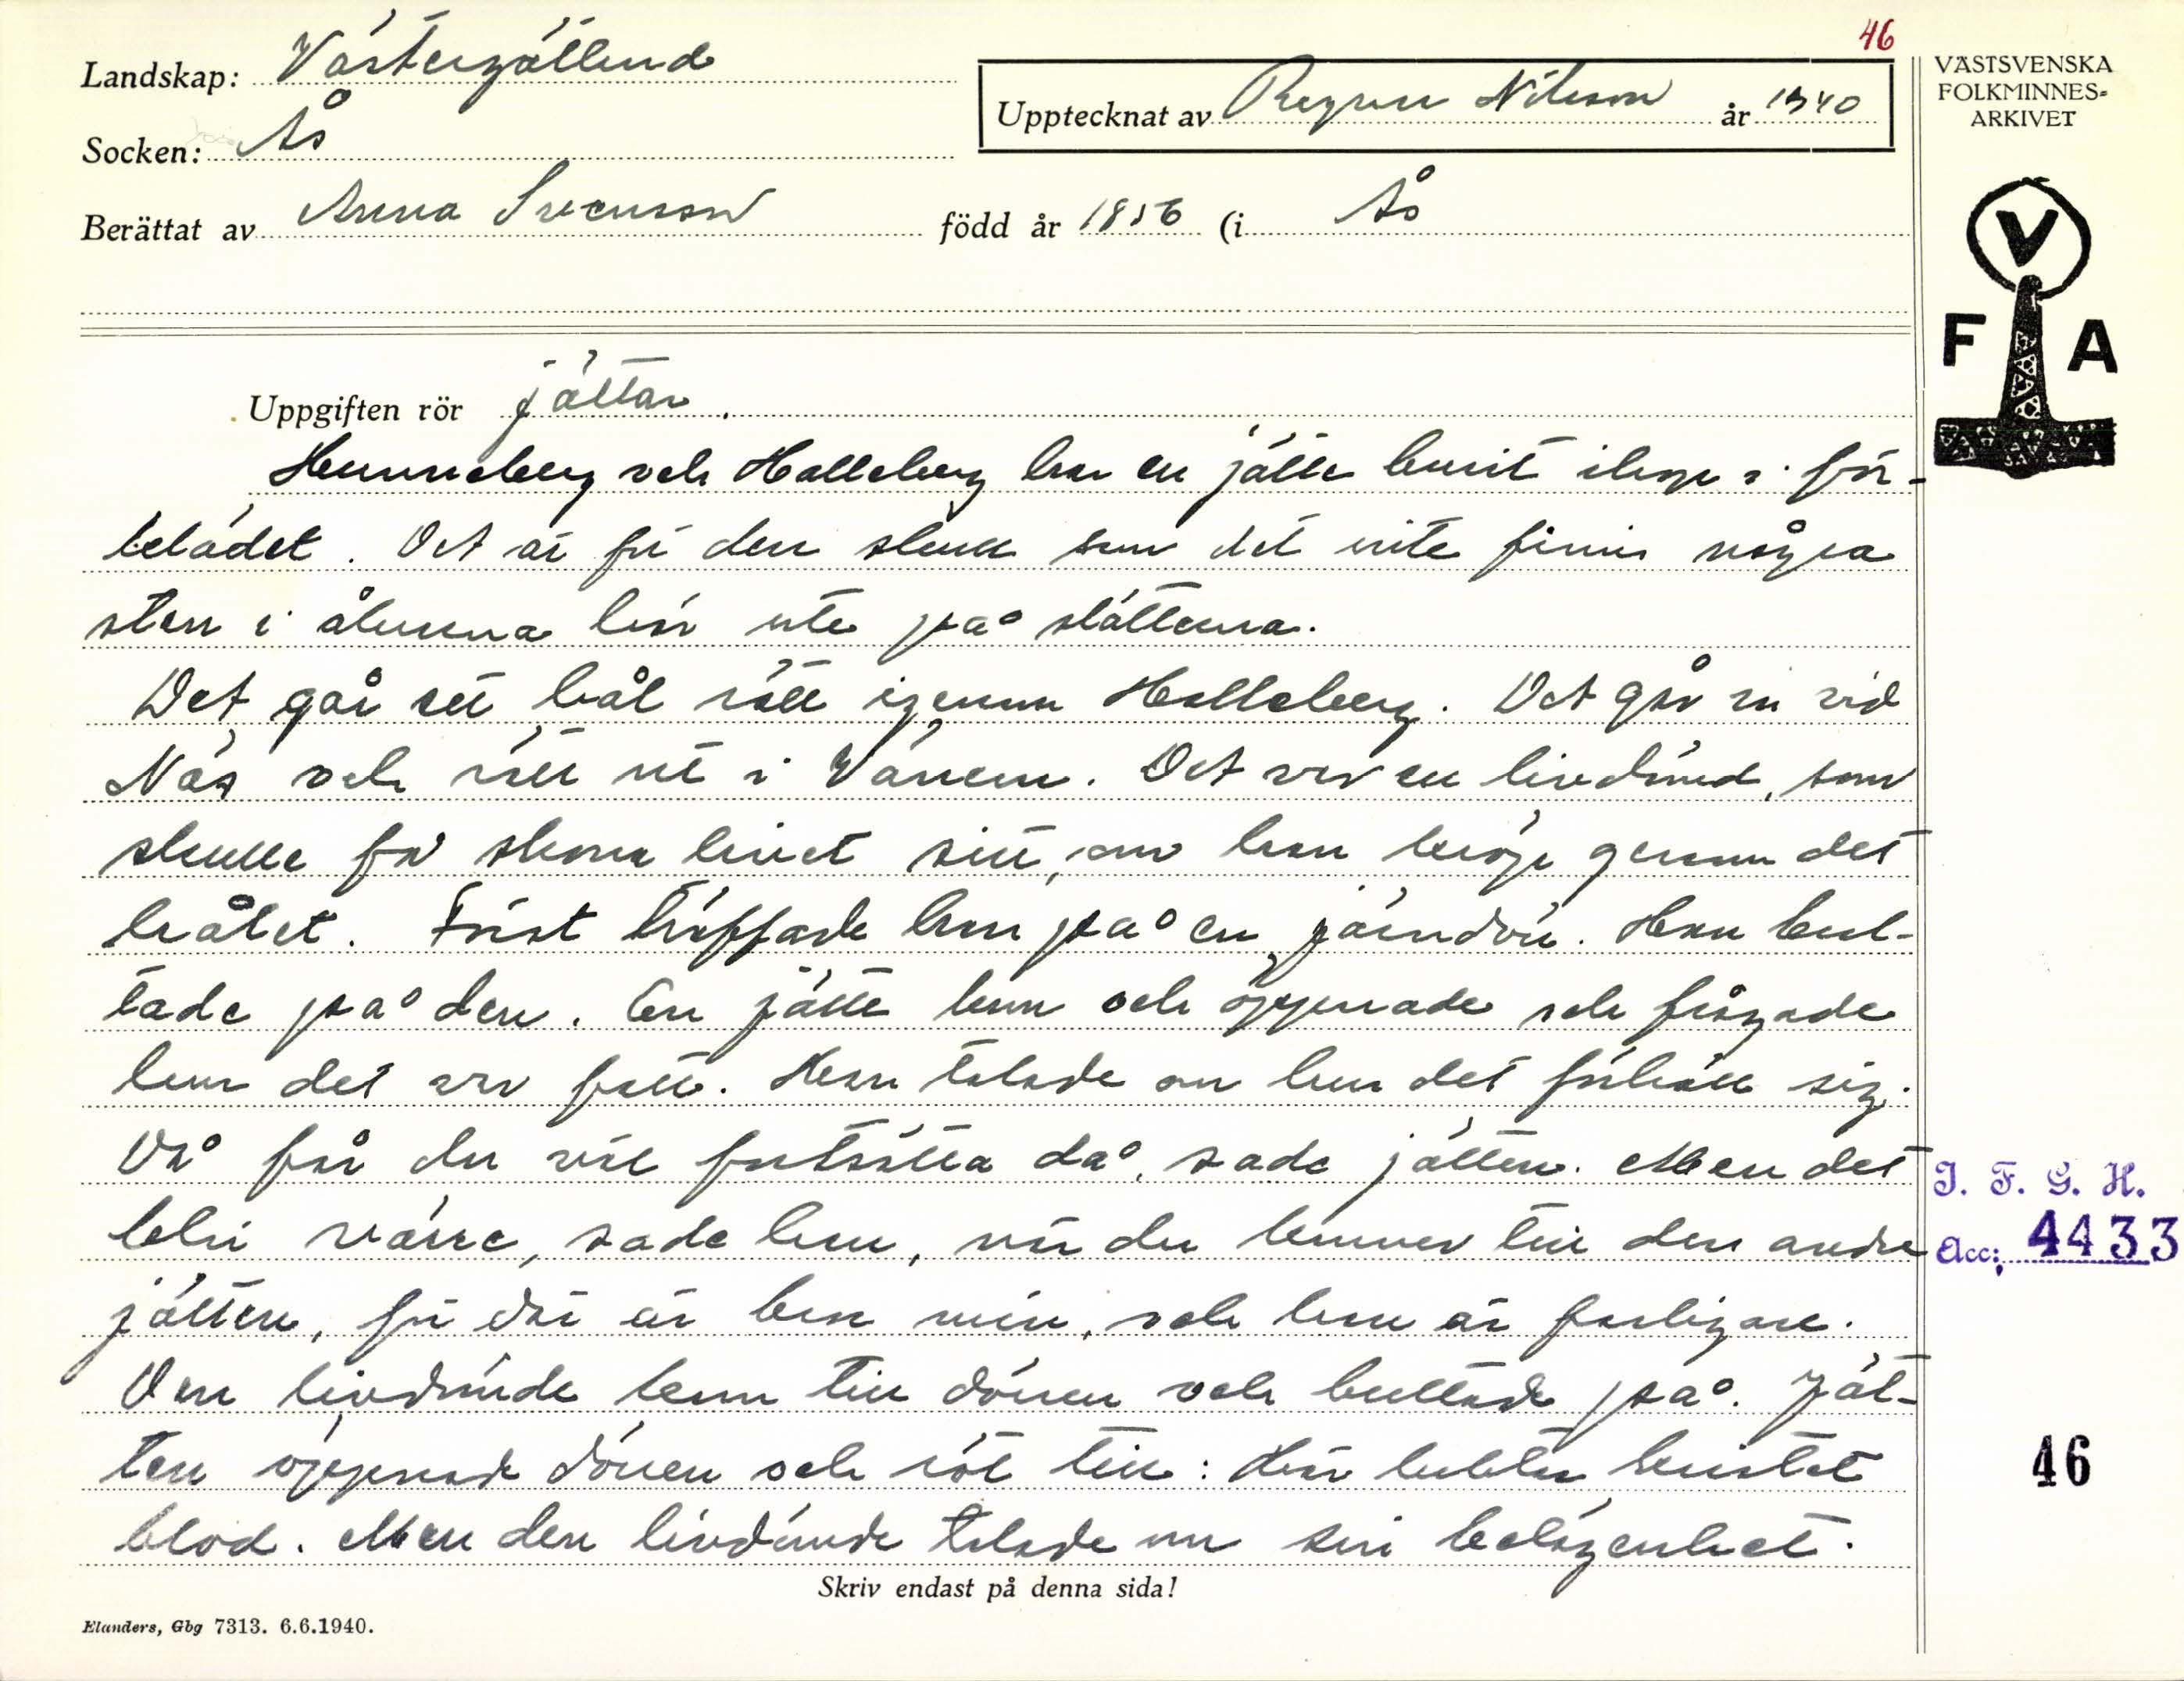 46
Landskap: Västergötland
Socken: Ås
Upptecknat av Ragnar Nilsson år 1940
Berättat av Anna Svensson född år 1856 (i Ås
VÄSTSVENSKA
FOLKMINNES=
ARKIVET
V
F A
Uppgiften rör jättar.
Hunneberg och Halleberg har en jätte burit ihop i för-
klädet. Det är för den skull som det inte finns några
sten i åkrarna här ute på slätterna.
Det går ett hål rätt igenom Halleberg. Det går in vid
Näs och rätt ut i Vänern. Det var en livdömd, som
skulle få skona livet sitt, om han kröp genom det
hålet. Först träffade han på en järndörr. Han bul-
tade på den. En jätte kom och öppnade och frågade
hur det var fatt. Han talade om hur det förhöll sig.
Då får du väl fortsätta då, sade jätten. Men det
blir värre, sade han, när du kommer till den andre
jätten, för där är bror min, och han är farligare.
Den livdömde kom till dörren och bultade på. Jät-
ten öppnade dörren och röt till: Här luktar kristet
blod. Men den livdömde talade om sin belägenhet.
I. F. G. H.
Acc: 4433
46
Skriv endast på denna sida!
Elanders, Gbg 7313. 6.6.1940.